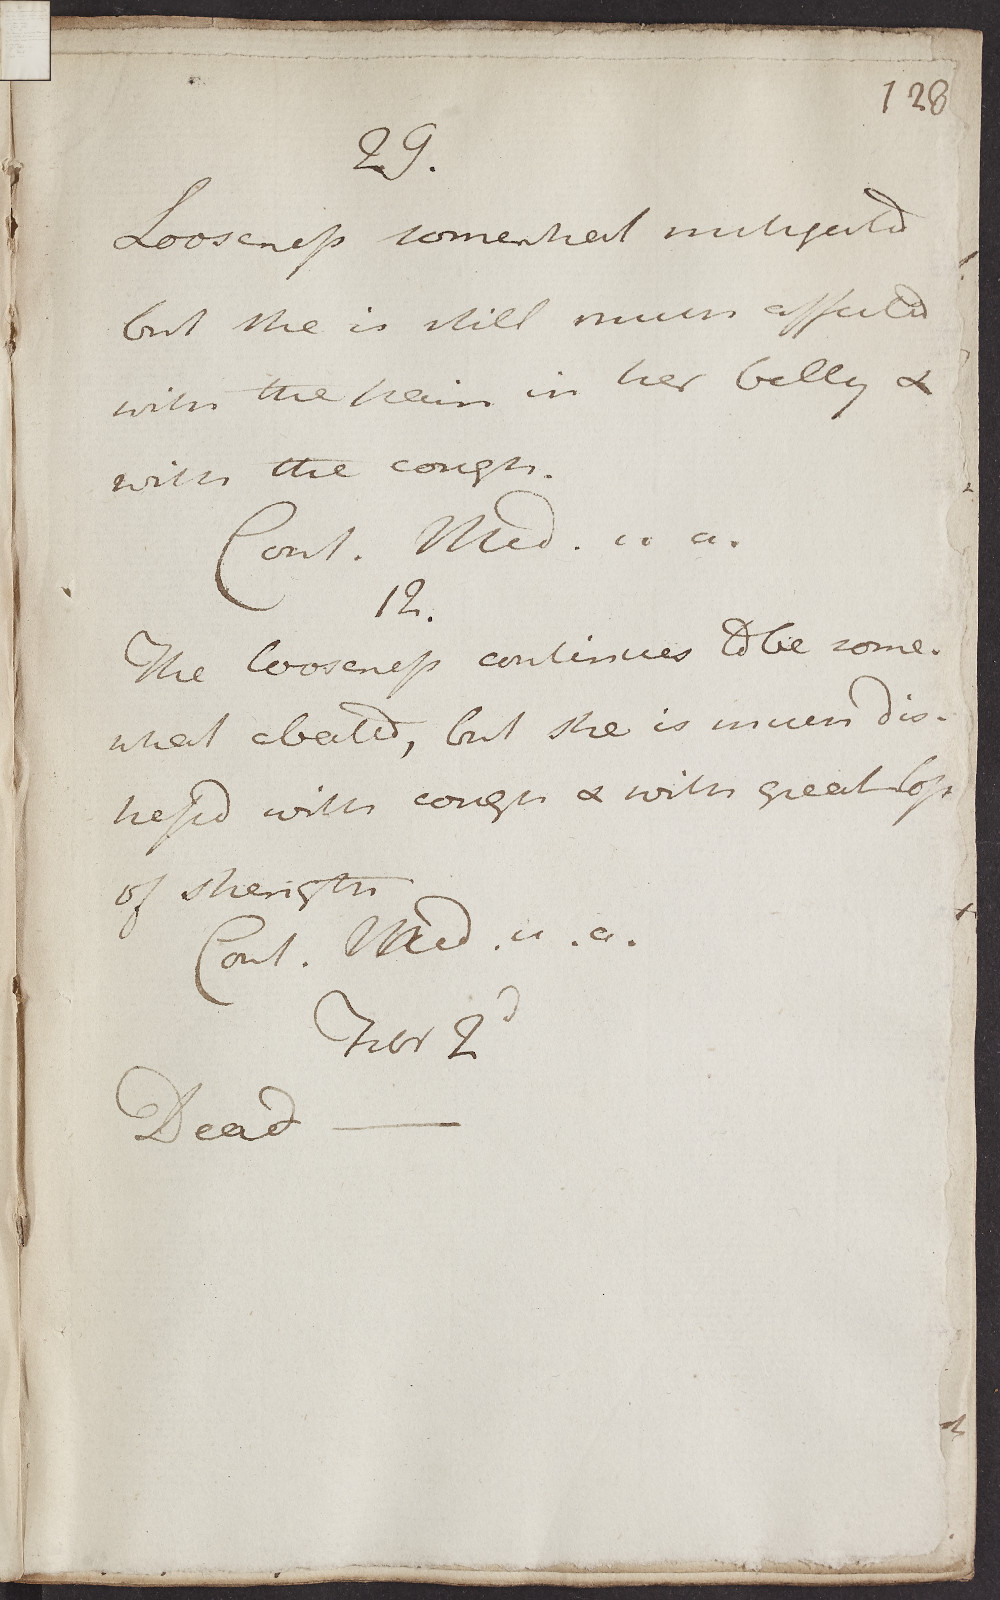 128
29.
Looseness somewhat mitigated
but she is still much affected
with the pain in her belly &
with the cough.
Cont. Med. u a.
12.
The looseness continues to be some-
what abated, but she is much dis-
tressed with cough & with great loss
of strength
Cont. Med. u. a.
Febr 2d
Dead —